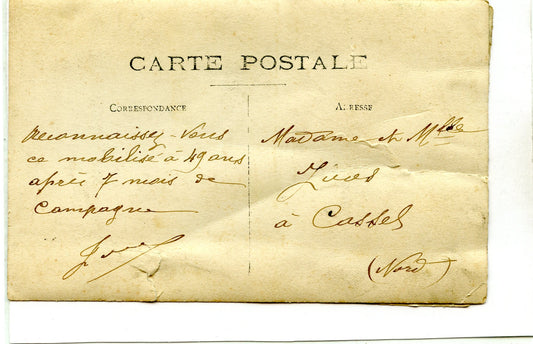 CARTE POSTALE
CORRESPONDANCE
Reconnaissez-vous
ce mobilisé à 49 ans
après 7 mois de
Campagne
ADRESSE
Madame et Mlle
à Cassel
(Nord)